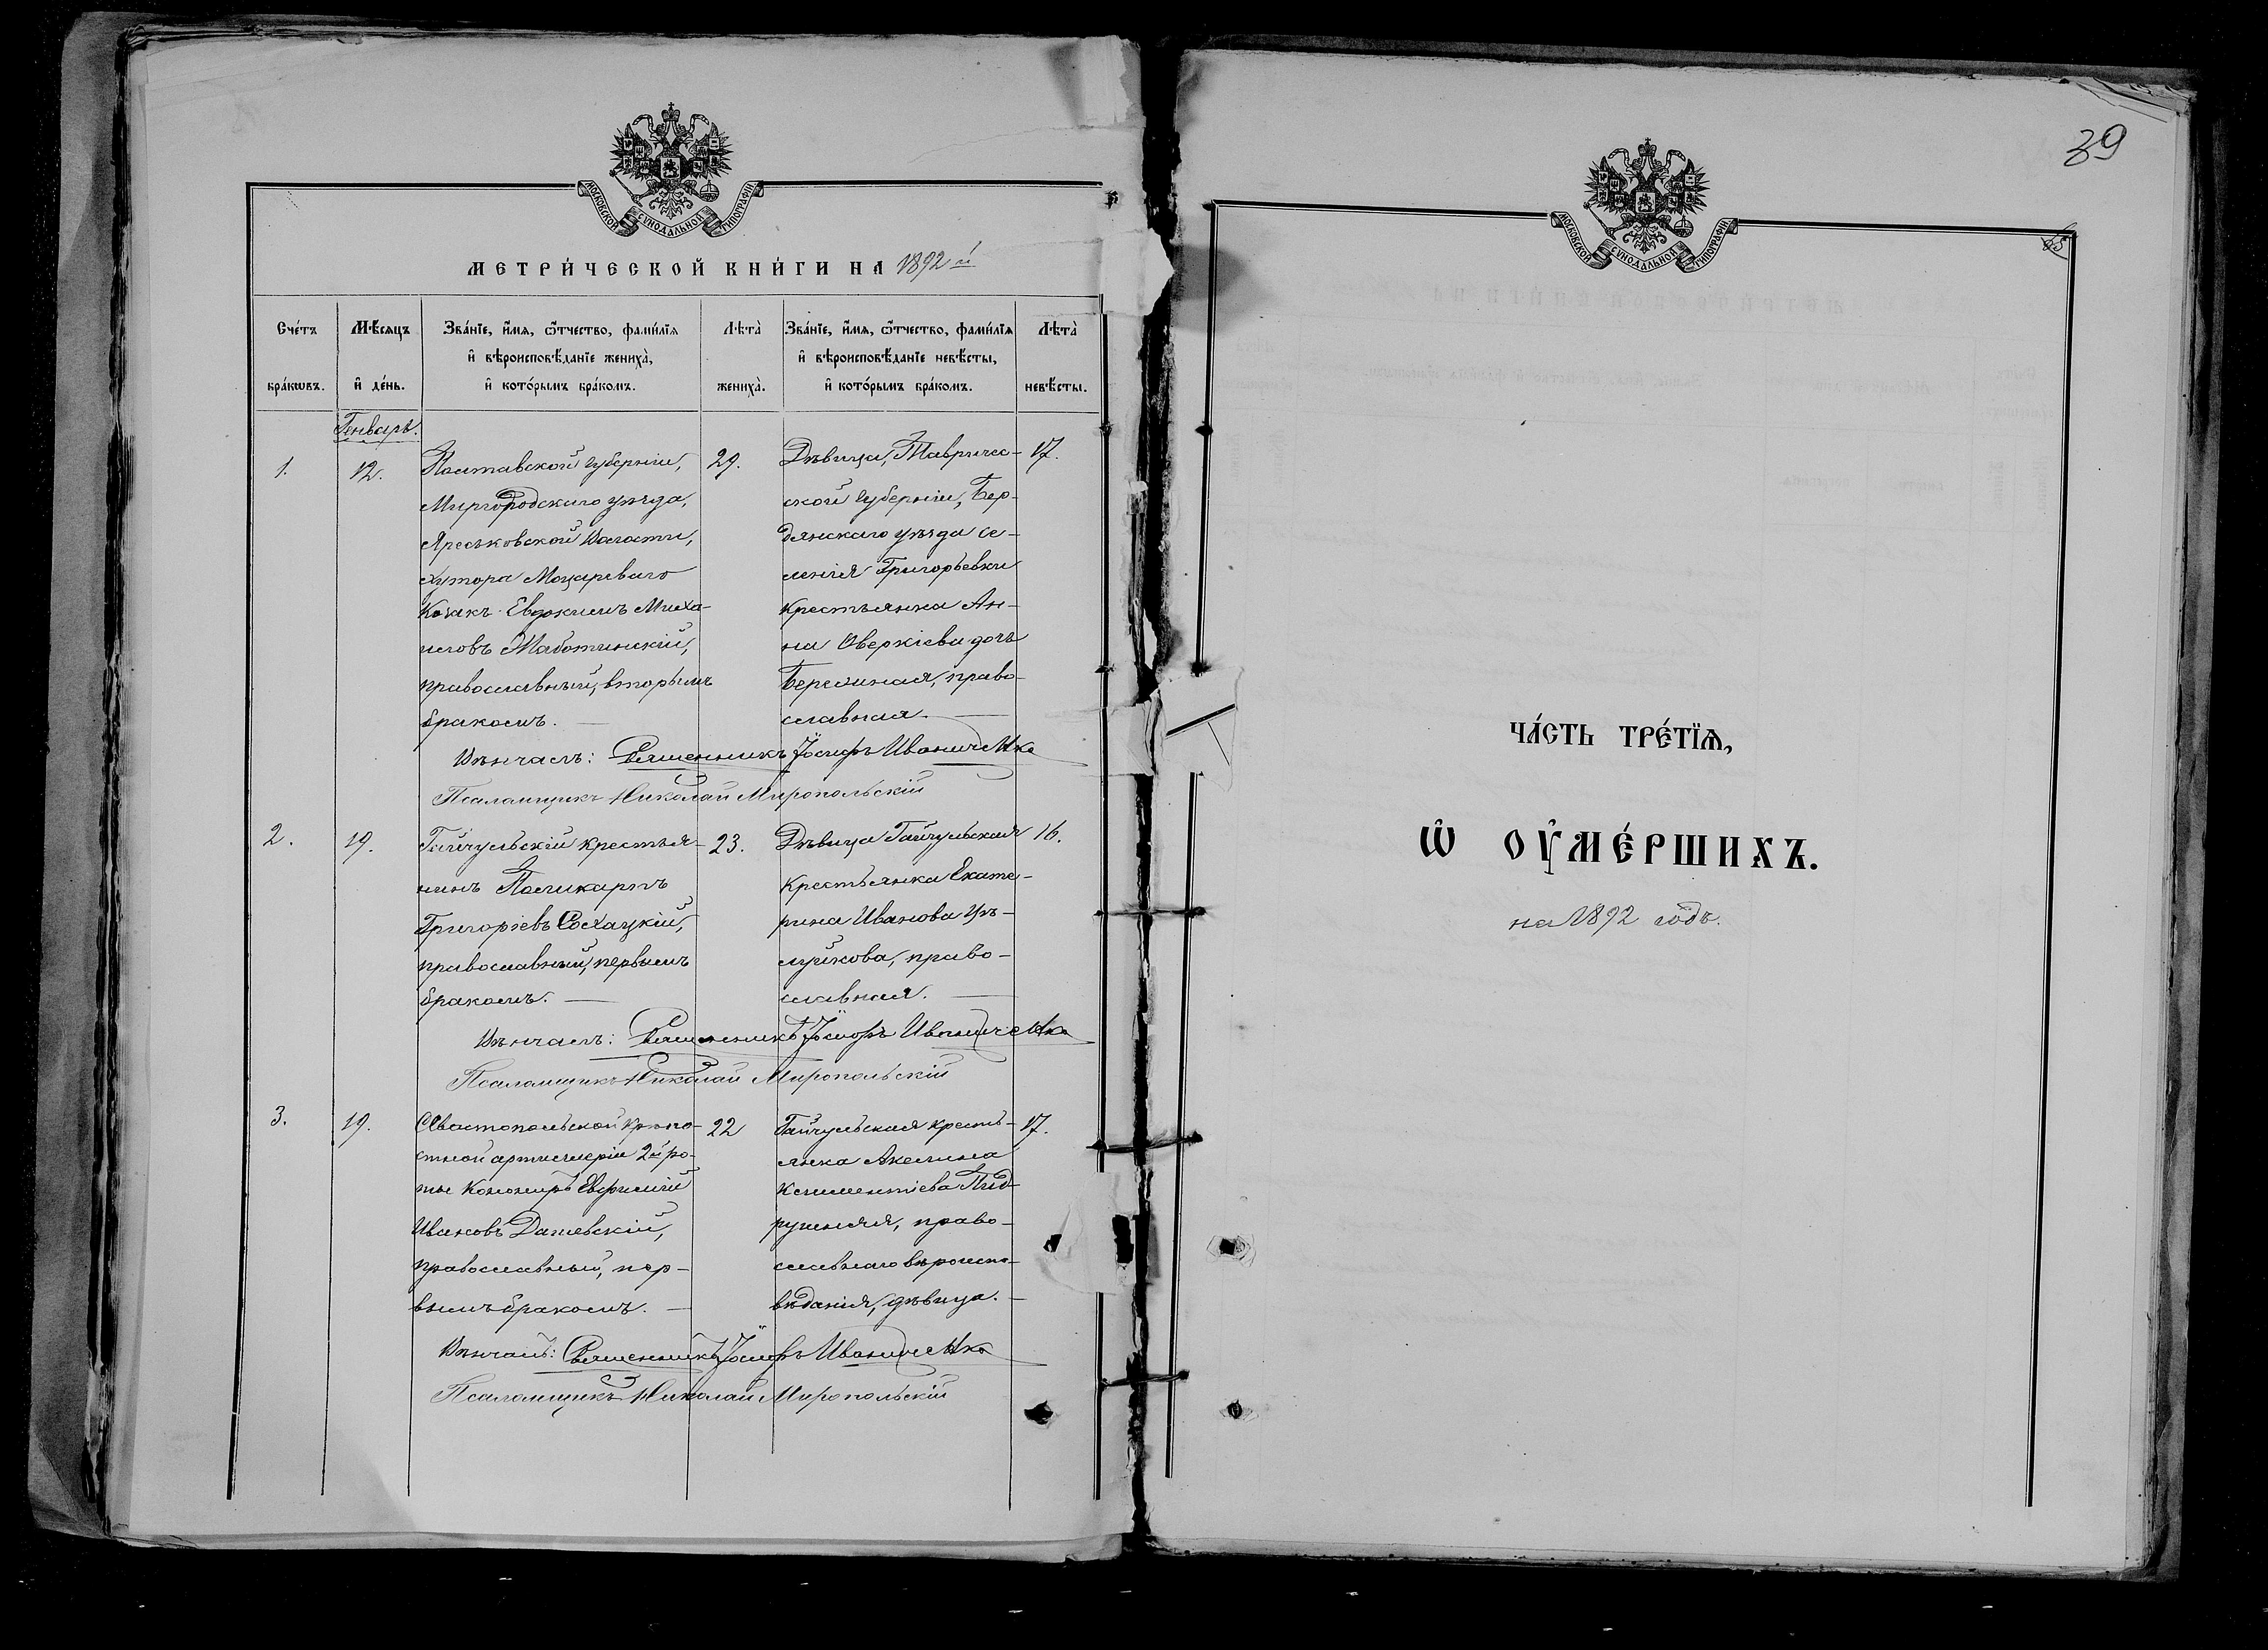 МОСКОВСКОЙ СѴНОДАЛЬНОЙ ТИПОГРАФІИ
МЕТРИ́ЧЕСКОЙ КНИ́ГИ НА 1892 й
Сче́тъ бра́кѡвъ.
Мѣ́сяцъ и҆ де́нь.
Зва́нїе, и҆́мѧ, ѻ҆́тчество, фами́лїѧ
и҆ вѣроисповѣ́данїе жениха̀,
и҆ кото́рымъ бра́комъ.
Лѣта̀ жениха̀.
Зва́нїе, и҆́мѧ, ѻ҆́тчество, фами́лїѧ
и҆ вѣроисповѣ́данїе невѣ́сты,
и҆ кото́рымъ бра́комъ.
Лѣта̀ невѣ́сты.
Генварь.
1.
12.
Полтавской губерніи,
Миргородскаго уѣзда,
Яреськовской Волости,
хутора
Козакъ Евдокимъ Миха-
иловъ
православный, вторымъ
бракомъ.
29.
Дѣвица, Тавричес-
ской губерніи, Бер-
дянскаго уѣзда се-
ленія Григорьевки
крестьянка Ан-
на Оверкіева дочь
право-
славная.
17.
Вѣнчалъ: Священникъ Іосифъ Иваниченко
Псаломщикъ Николай Миропольскій
2.
19.
Гайчульскій крестья-
нинъ Поликарпъ
Григоріевъ Сохацкій,
православный, первымъ
бракомъ.
23.
Дѣвица Гайчульская
крестьянка Екате-
рина Иванова Цѣ-
луйкова, право-
славная.
16.
Вѣнчалъ: Священникъ Іосифъ Иваниченко
Псаломщикъ Николай Миропольскій
3.
19.
Севастопольской крѣпо-
стной артиллеріи 2й ро-
ты Канониръ Евфимій
Ивановъ Дашевскій,
православный, пер-
вымъ бракомъ.
22
Гайчульская кресть-
янка Акелина
Климентіева Пид-
ружняя, право-
славнаго вѣроиспо-
вѣданія, дѣвица.
17.
Вѣнчалъ: Священникъ Іосифъ Иваниченко
Псаломщикъ Николай Миропольскій
39
МОСКОВСКОЙ СѴНОДАЛЬНОЙ ТИПОГРАФІИ
ЧА́СТЬ ТРЕ́ТЇѦ,
Ѡ҆ ОУ҆МЕ́РШИХЪ.
на 1892 годъ.